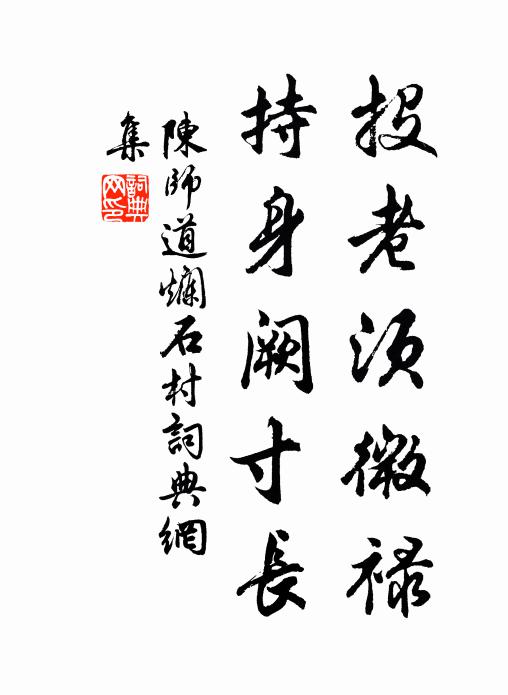 投老須微祿
持身闕寸長
陳師道爛石村詞典網
集
詞典
网印